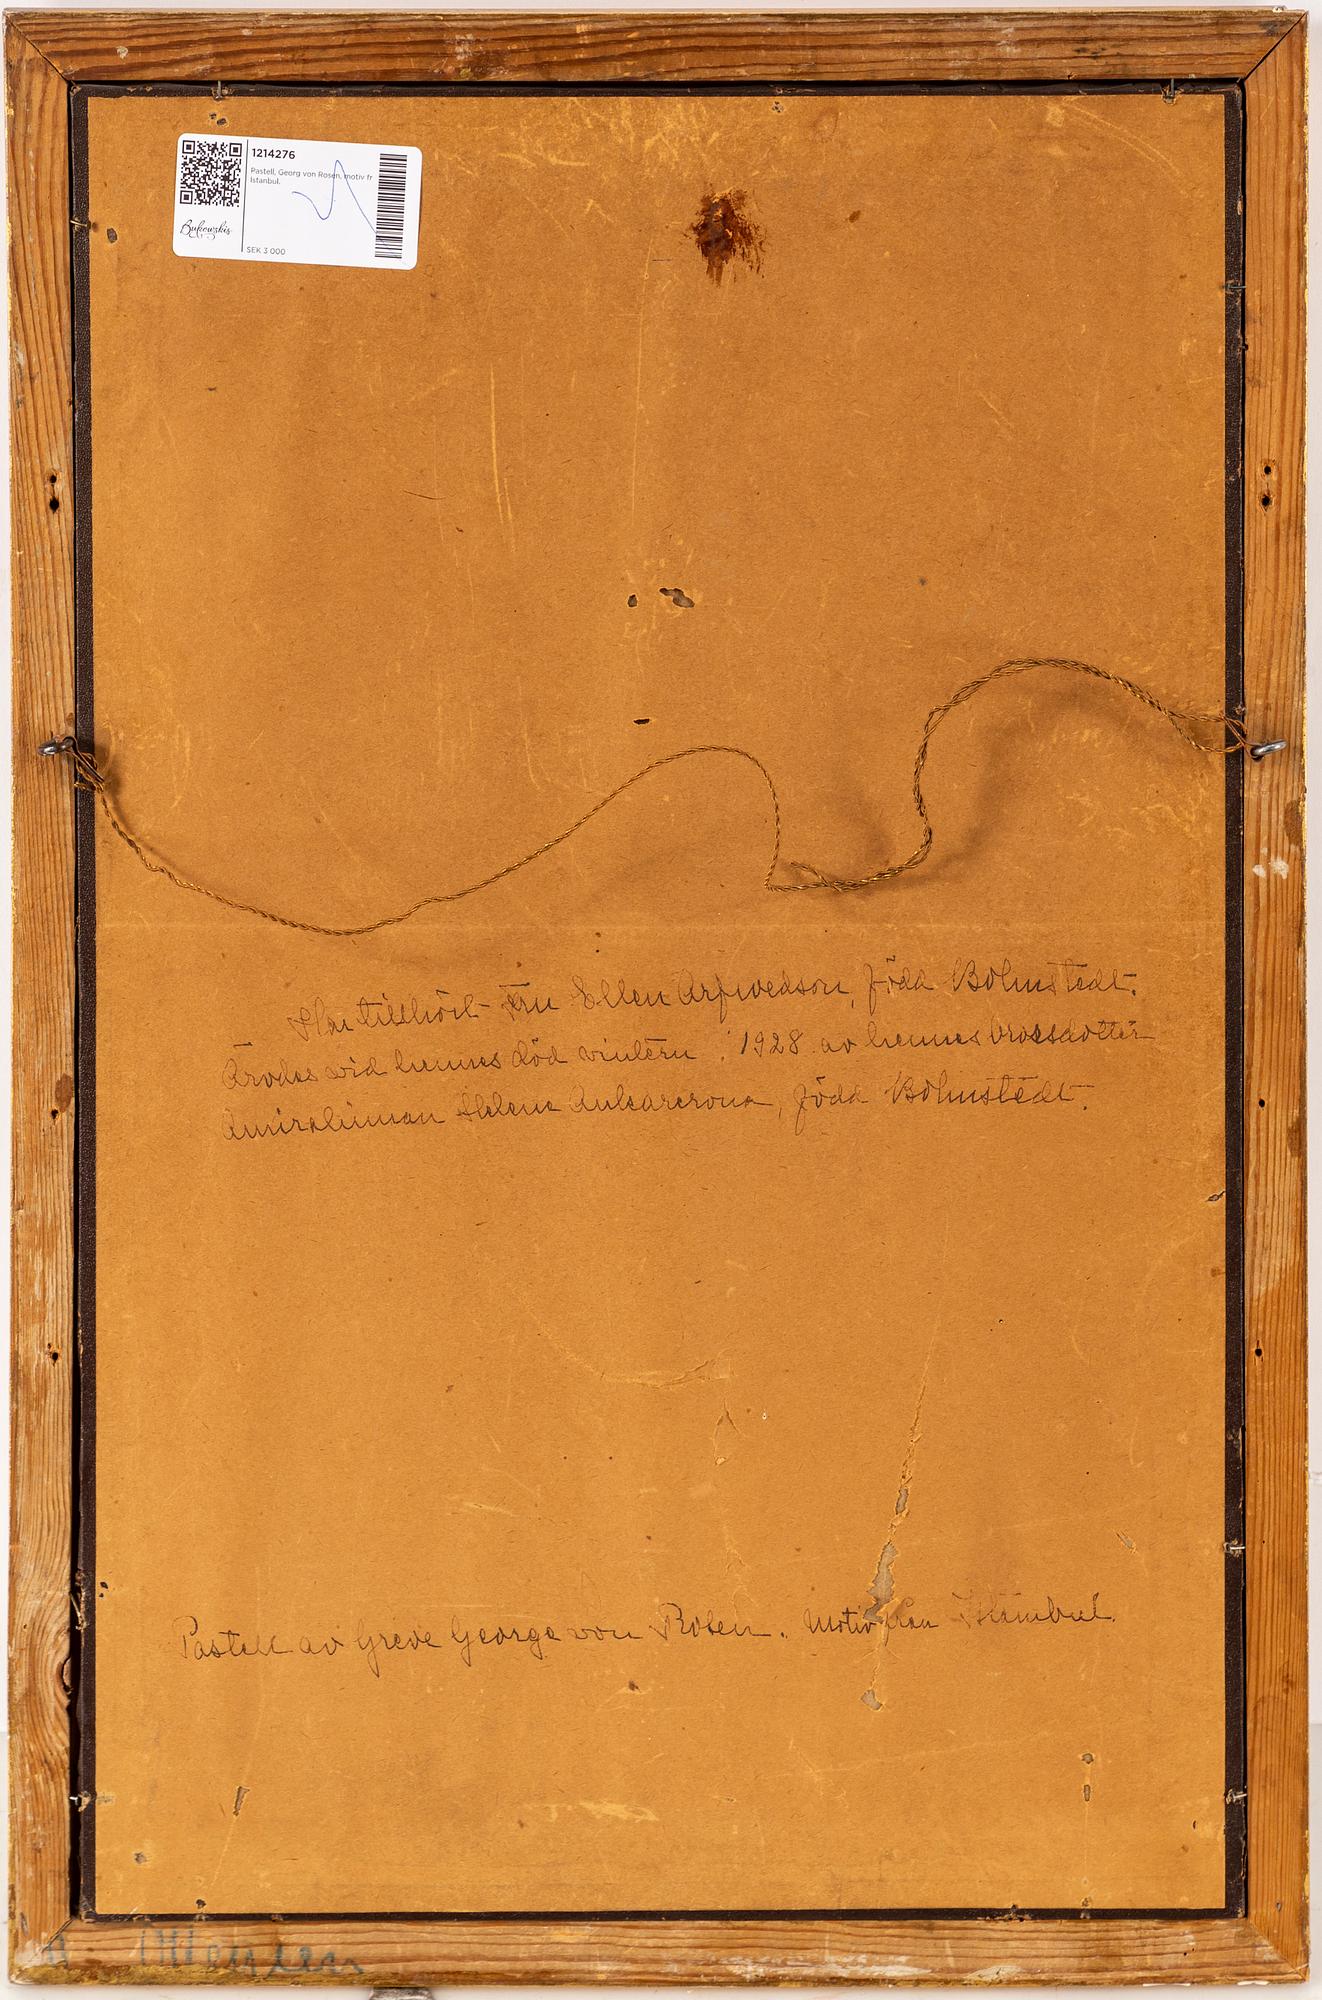 1214276
Pastell, Georg von Rosen, motiv fr
Istanbul.
Bukowskis
SEK 3 000
Har tillhört Fru Ellen Arfwedson, född Bolmstedt.
Ärvdes vid hennes död vintern 1928 av hennes brorsdotter
Amiralinnan Helene Ankarcrona, född Bolmstedt.
Pastell av greve George von Rosen. Motiv från Istambul.